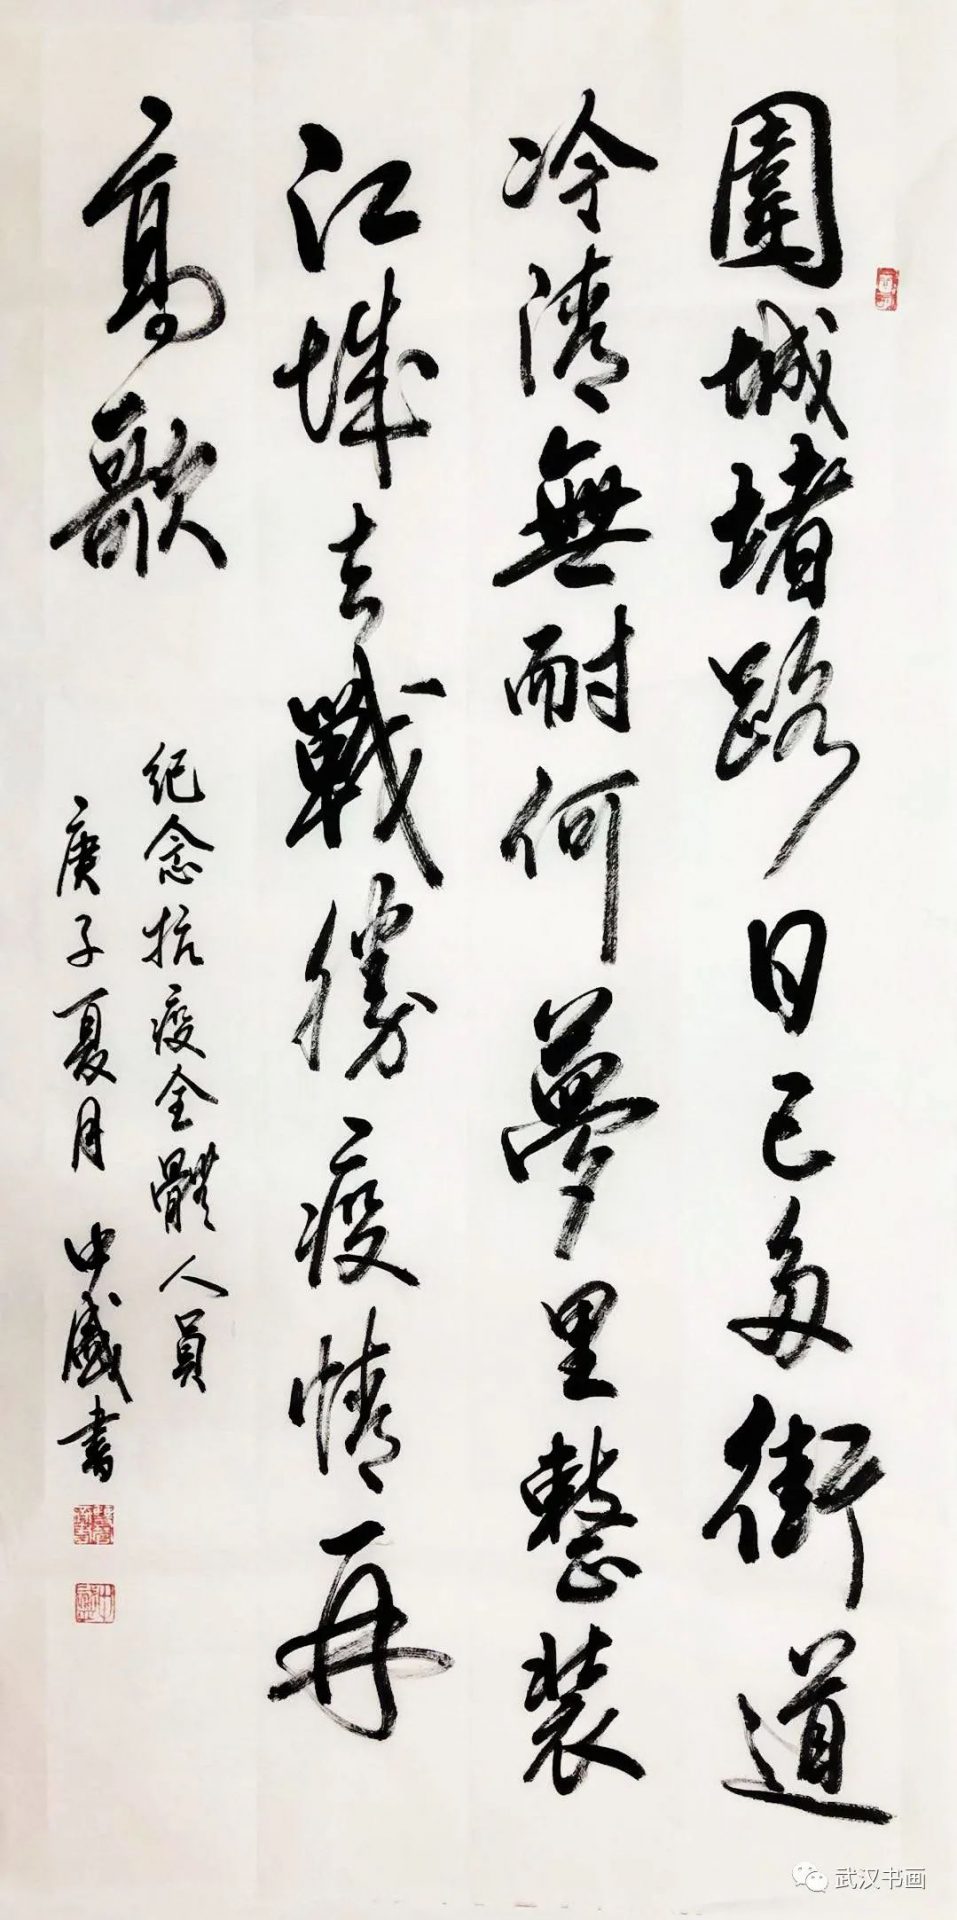 圍城堵路日已多街道
冷清無耐何夢里整裝
江城去戰勝疫情再
高歌
纪念抗疫全體人員
庚子夏月 中盛书
武汉书画